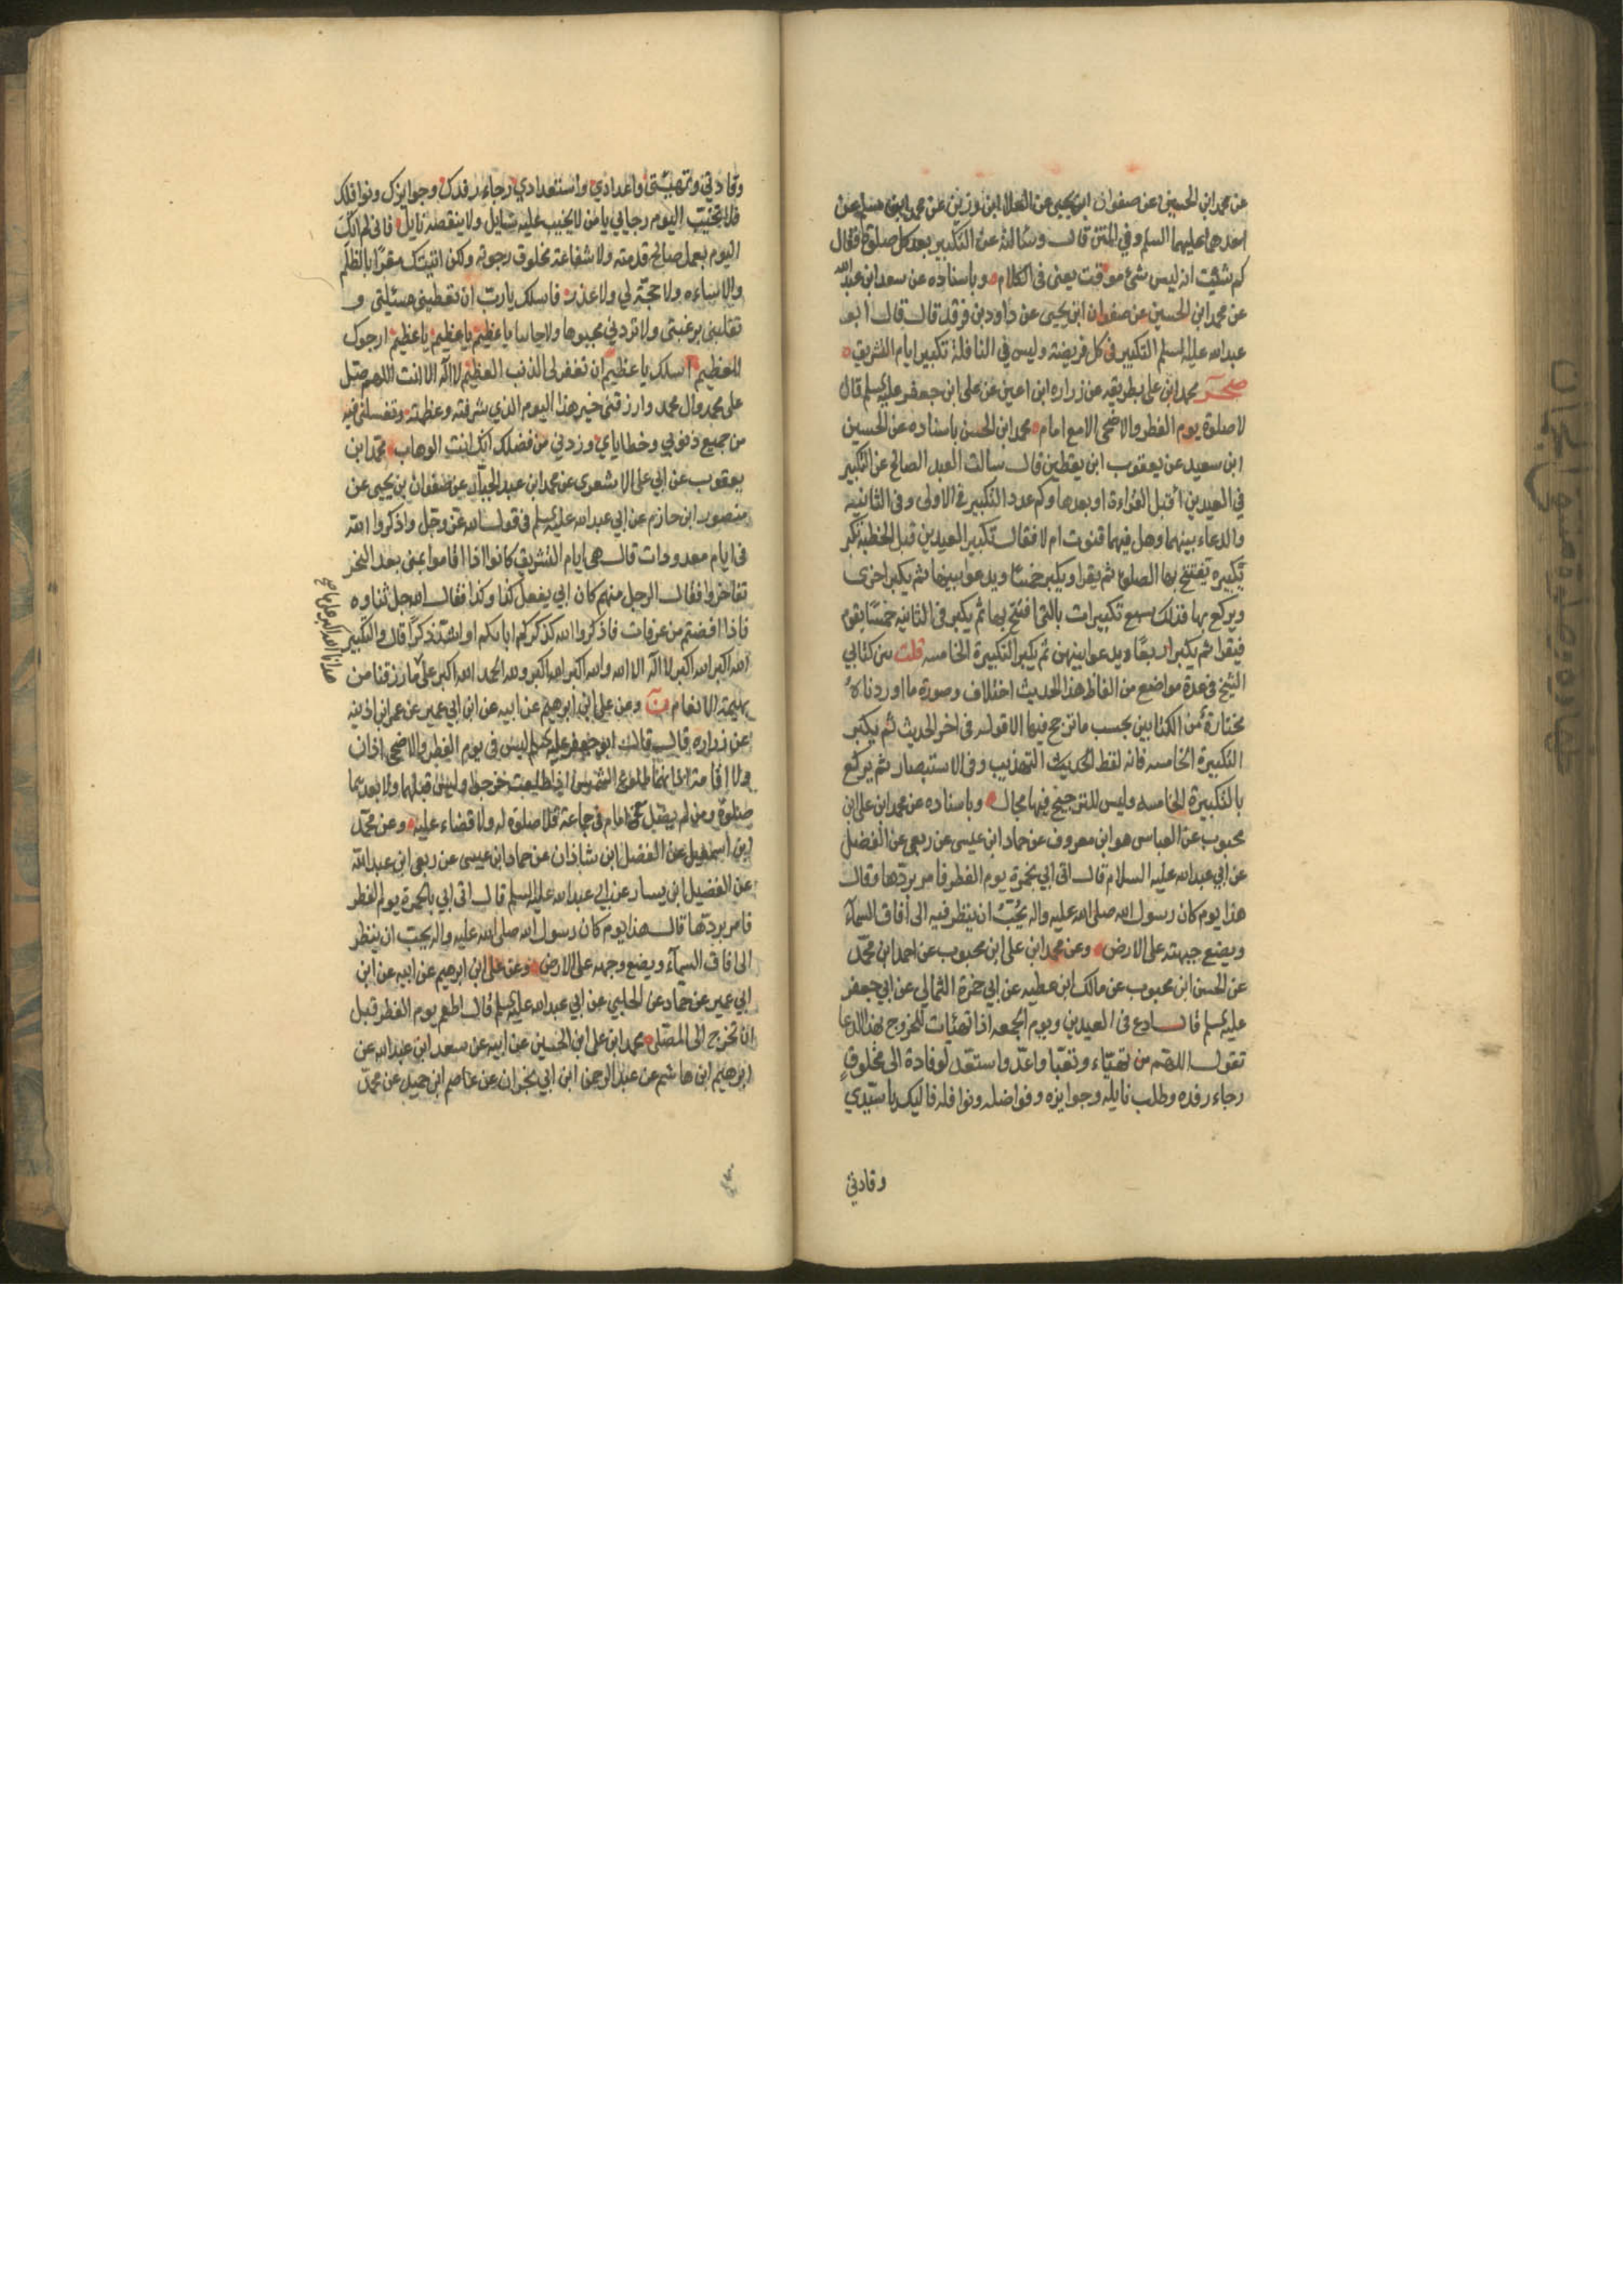 عن محمد ابن الحسين عن صفوان ابن يحيى عن العلا ابن رزين عن محمد ابن مسلم عن
احدهما عليهما السلم وفي المتن قال وسالته عن التكبير بعد كل صلوة فقال
كم شئت انه ليس شئ موقت يعنى فى الكلام وباسناده عن سعد ابن عبد الله
عن محمد ابن الحسين عن صفوان ابن يحيى عن داود بن فرقد قال قال ابو
عبد الله عليه السلم التكبير فى كل فريضة وليس في النافلة تكبير ايام التشريق
صحر محمد ابن على بطريقه عن زراره ابن اعين عن على ابن جعفر عليه السلم قال
لا صلوة يوم الفطر والاضحى الا مع امام محمد ابن الحسن باسناده عن الحسين
ابن سعيد عن يعقوب ابن يقطين قال سالت العبد الصالح عن التكبير
في العيدين أقبل القراءة او بعدها وكم عدد التكبير فى الاولى وفى الثانيه
والدعاء بينهما وهل فيهما قنوت ام لا فقال تكبير العيدين قبل الخطبة تكبر
تكبيره تفتتح بها الصلوة ثم يقرا ويكبر خمسًا ويدعو ابينها ثم يكبر اخرى
ويركع بها فذلك سبع تكبيرات بالتى افتتح بها ثم يكبر فى الثانيه خمسًا يقوم
فيقرا ثم يكبر اربعًا ويدعو ابينهن ثم يكبر التكبيرة الخامسه قلت بين كتابي
الشيخ فى عدة مواضع من الفاظ هذا الحديث اختلاف وصورة ما اوردناه
مختارة من الكتابين بحسب ما ترجح فيها الا قوله فى اخر الحديث ثم يكبر
التكبيرة الخامسه فانه لفظ الحديث فى التهذيب وفى الاستبصار ثم يركع
بالتكبيرة الخامسه وليس للترجيح فيها مجال وباسناده عن محمد ابن على ابن
محبوب عن العباس هو ابن معروف عن حماد ابن عيسى عن ربعى عن الفضل
عن ابي عبد الله عليه السلام قال اتى ابي بخمرة يوم الفطر فامر بردّها وقال
هذا يوم كان رسول الله صلى الله عليه واله يُحبُّ ان ينظر فيه الى آفاق السمآء
ويضع جبهته على الارض وعن محمد ابن على ابن محبوب عن احمد ابن محمّد
عن الحسن ابن محبوب عن مالك ابن عطيه عن ابي حمزة الثمالي عن ابي جعفر
عليه السلم قال ادع فى العيدين ويوم الجمعه اذا تهيئات للخروج بهذا الدعا
تقول اللهّم من تهيّاء وتعبّا واعدّ واستعدّ لوفادة الى مخلوقٍ
رجاء رفده وطلب نايله وجوايزه وفواضله ونوافله فاليك يا سيّدي
وفادتي
وفادتي وتهيئتى واعدادي واستعدادي رجاء رفدك وجوايزك ونوافلك
فلا تخيّب اليوم رجايي يا من لا يخيب عليه سايل ولا ينقصه نايل فانى لم اتك
اليوم بعمل صالح قدمته ولا شفاعة مخلوق رجوته ولكن اتيتك مقرًا بالظلم
والاساءه ولا حجّة لي ولا عذر فاسلك يا ربّ ان تعطينى مسئلتى و
تقلبنى برغبتى ولا تردنى مجبوها ولا خايبا يا عظيم يا عظيم يا عظيم ارجوك
للعظيم اسلك يا عظيم ان تغفر لى الذنب العظيم لا اله الا انت اللهم صل
على محمد وال محمد وارزقنى خير هذا اليوم الذي شرفته وعظمته وتغسلنى فيه
من جميع ذنوبي وخطاياي وزدني من فضلك انك انت الوهاب محمّد ابن
يعقوب عن ابي على الاشعرى عن محمد ابن عبد الجبّار عن صفوان بن يحيى عن
منصور ابن حازم عن ابي عبد الله عليه السلم فى قول الله عزّ وجل واذكروا الله
فى ايام معدودات قال هى ايام التشريق كانوا اذا اقاموا بمنى بعد النحر
تفاخروا فقال الرجل منهم كان ابي يفعل كذا وكذا فقال الله جل ثناوه
فاذا افضتم من عرفات فاذكروا الله كذكركم اباءكم او اشدّ ذكرًا قال والتكبير
الله اكبر الله اكبر لا اله الا الله والله اكبر الله اكبر ولله الحمد الله اكبر على ما رزقنا من
بهيمة الانعام ن وعن على ابن ابرهيم عن ابيه عن ابن ابي عمير عن عمر ابن اذينه
عن زراره قال قال ابو جعفر عليه السلم ليس فى يوم الفطر والاضحى اذان
ولا اقامة اذانهما طلوع الشمس اذا طلعت خرجوا وليس قبلهما ولا بعدهما
صلوة ومن لم يصل مع امام فى جماعة فلا صلوة له ولا قضاء عليه وعن محمّد
ابن اسمعيل عن الفضل ابن شاذان عن حماد ابن عيسى عن ربعى ابن عبد الله
عن الفضيل ابن يسار عن ابى عبد الله عليه السلم قال اتى ابي بالخمرة يوم الفطر
فامر بردّها قال هذا يوم كان رسول الله صلى الله عليه واله يحب ان ينظر
الى افاق السمآء ويضع وجهه على الارض وعن على ابن ابرهيم عن ابيه عن ابن
ابي عمير عن حمّاد عن الحلبي عن ابي عبد الله عليه السلم قال اطعم يوم الفطر قبل
ان تخرج الى المصّلى محمد ابن على ابن الحسين عن ابيه عن سعد ابن عبد الله عن
ابرهيم ابن هاشم عن عبد الرحمن ابن ابي نجران عن عاصم ابن حميد عن محمّد
هدانا الله اكبر على ما